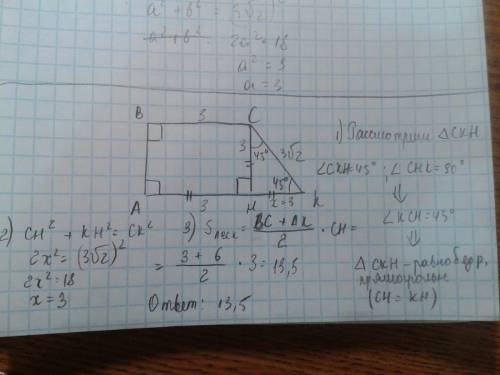 a² + b² = (3√2)²
a² + b² 2a² = 18
a² = 9
a = 3
B 3 C
3 45° 3√2
45°
A 3 H x = 3 K
1) Рассмотрим △CKH
∠CKH=45° ; ∠CHK=90°
⇓
∠KCH=45°
⇓
△ CKH – равнобедр,
прямоугольн
(CH = KH)
2) CH² + KH² = CK²
2x² = (3√2)²
2x² = 18
x = 3
3) S = BC + AK / 2 · CH =
= 3 + 6 / 2 · 3 = 13,5
Ответ: 13,5